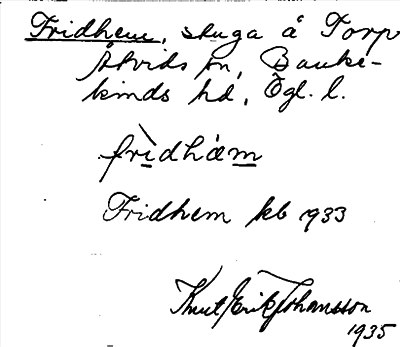 Fridhem, stuga å Torp
Åtvids sn, Banke-
kinds hd, Ögl. l.
frìdhäm
Fridhem kb 1933
Knut Erik Johansson
1935